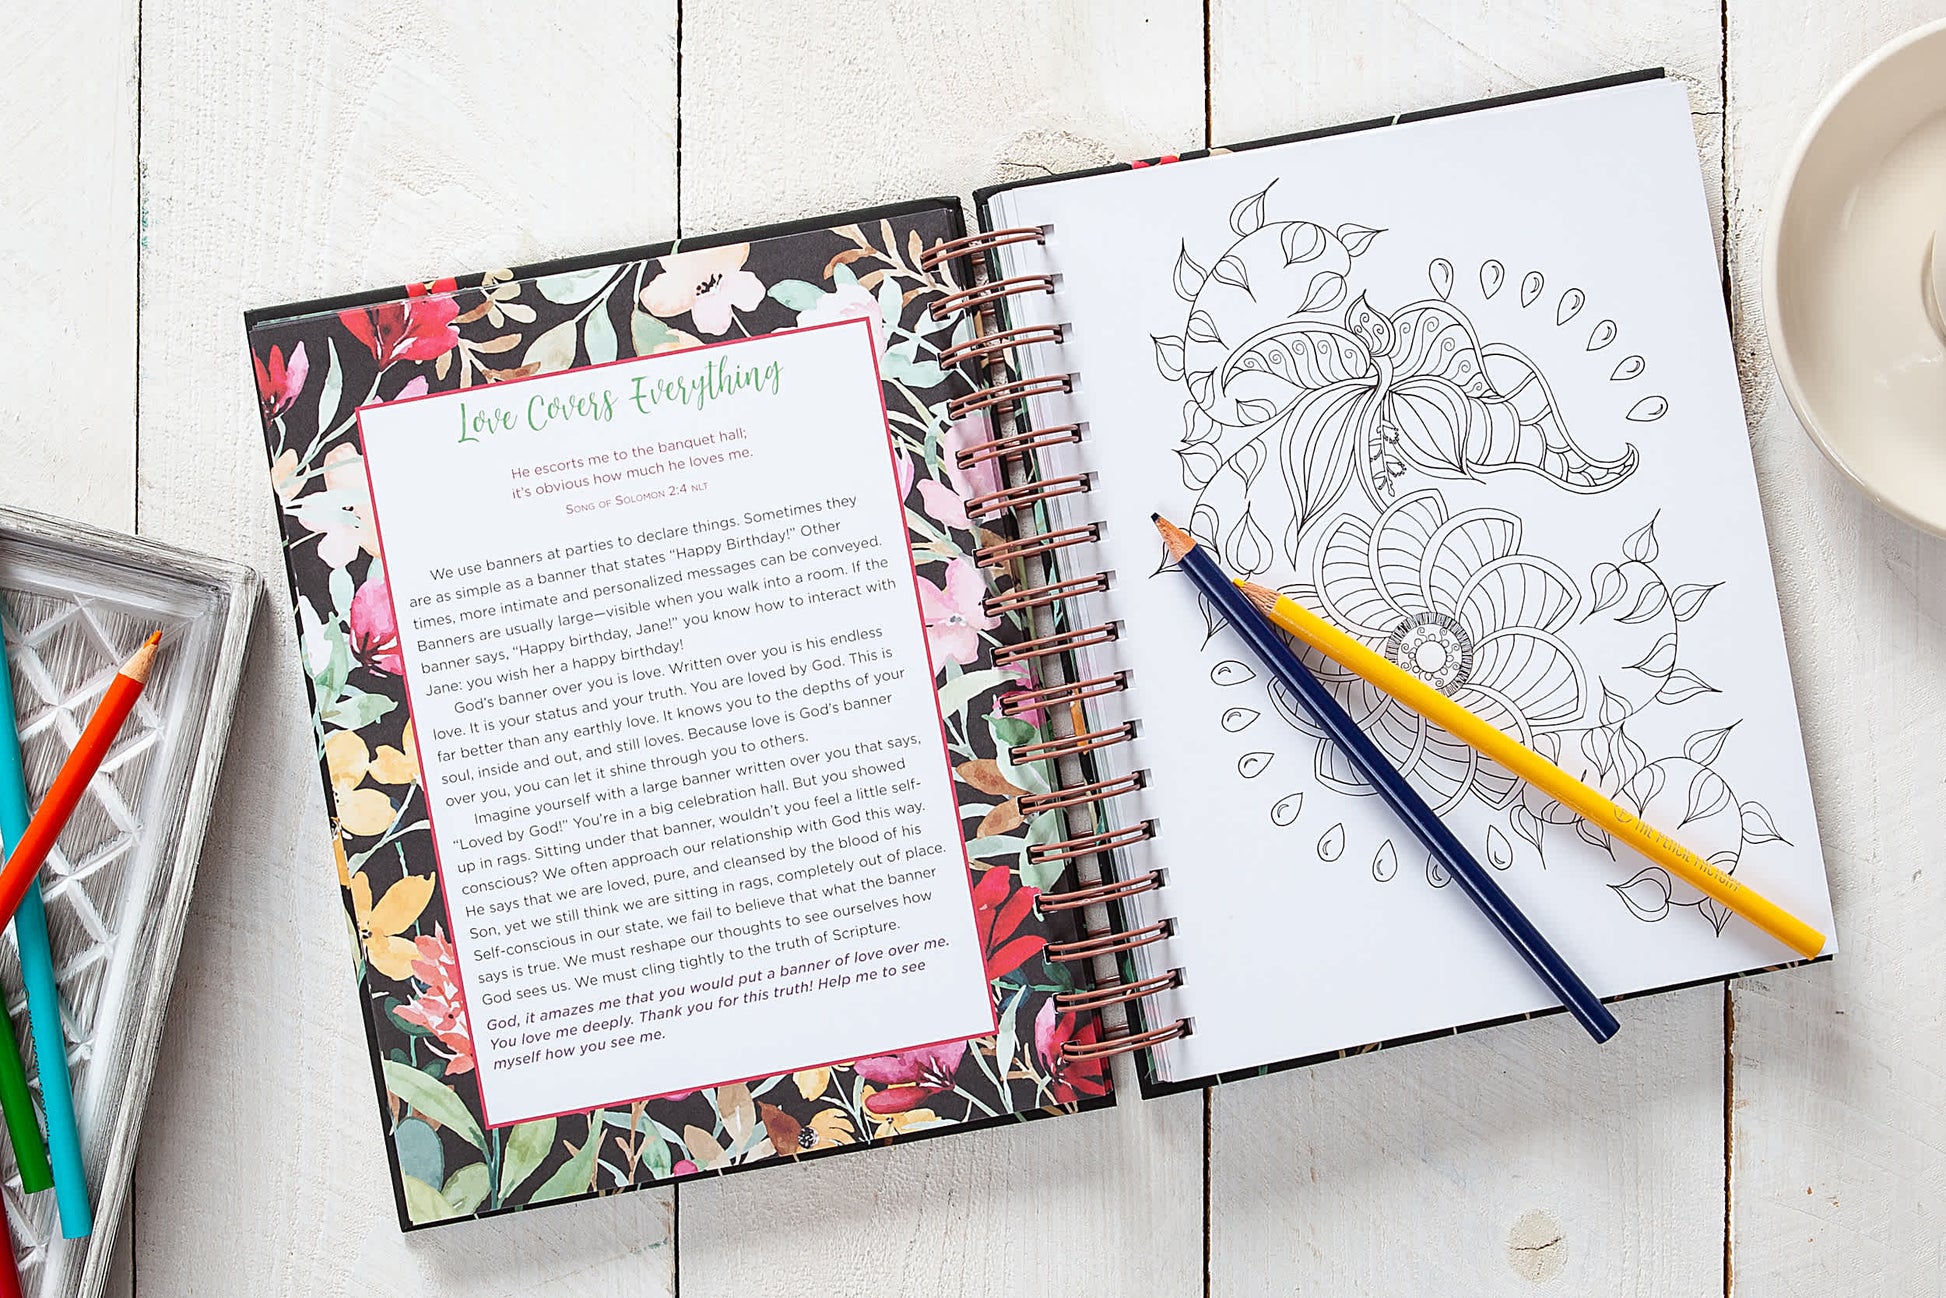 Love Covers Everything
He escorts me to the banquet hall;
it's obvious how much he loves me.
Song of Solomon 2:4 NLT
We use banners at parties to declare things. Sometimes they
are as simple as a banner that states “Happy Birthday!” Other
times, more intimate and personalized messages can be conveyed.
Banners are usually large—visible when you walk into a room. If the
banner says, “Happy birthday, Jane!” you know how to interact with
Jane: you wish her a happy birthday!
God’s banner over you is love. Written over you is his endless
love. It is your status and your truth. You are loved by God. This is
far better than any earthly love. It knows you to the depths of your
soul, inside and out, and still loves. Because love is God’s banner
over you, you can let it shine through you to others.
Imagine yourself with a large banner written over you that says,
“Loved by God!” You’re in a big celebration hall. But you showed
up in rags. Sitting under that banner, wouldn’t you feel a little self-
conscious? We often approach our relationship with God this way.
He says that we are loved, pure, and cleansed by the blood of his
Son, yet we still think we are sitting in rags, completely out of place.
Self-conscious in our state, we fail to believe that what the banner
says is true. We must reshape our thoughts to see ourselves how
God sees us. We must cling tightly to the truth of Scripture.
God, it amazes me that you would put a banner of love over me.
You love me deeply. Thank you for this truth! Help me to see
myself how you see me.
THE PENCIL FACTORY